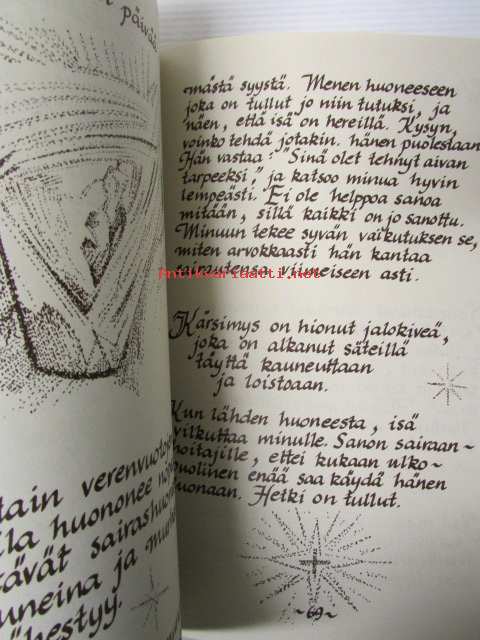 päivää
mästä syystä. Menen huoneeseen
joka on tullut jo niin tutuksi, ja
näen, että isä on hereillä. Kysyn,
voinko tehdä jotakin hänen puolestaan.
Hän vastaa: "Sinä olet tehnyt aivan
tarpeeksi" ja katsoo minua hyvin
lempeästi. Ei ole helppoa sanoa
mitään, sillä kaikki on jo sanottu.
Minuun tekee syvän vaikutuksen se,
miten arvokkaasti hän kantaa
sairautensa viimeiseen asti.
Kärsimys on hionut jalokiveä,
joka on alkanut säteillä
täyttä kauneuttaan
ja loistoaan.
Kun lähden huoneesta, isä
vilkuttaa minulle. Sanon sairaan~
hoitajille, ettei kukaan ulko~
puolinen enää saa käydä hänen
luonaan. Hetki on tullut.
~69~
tain verenvuoto
lla huononee
tävät sairashuon
uneina ja
hestyy.
Antikvariaatti.net